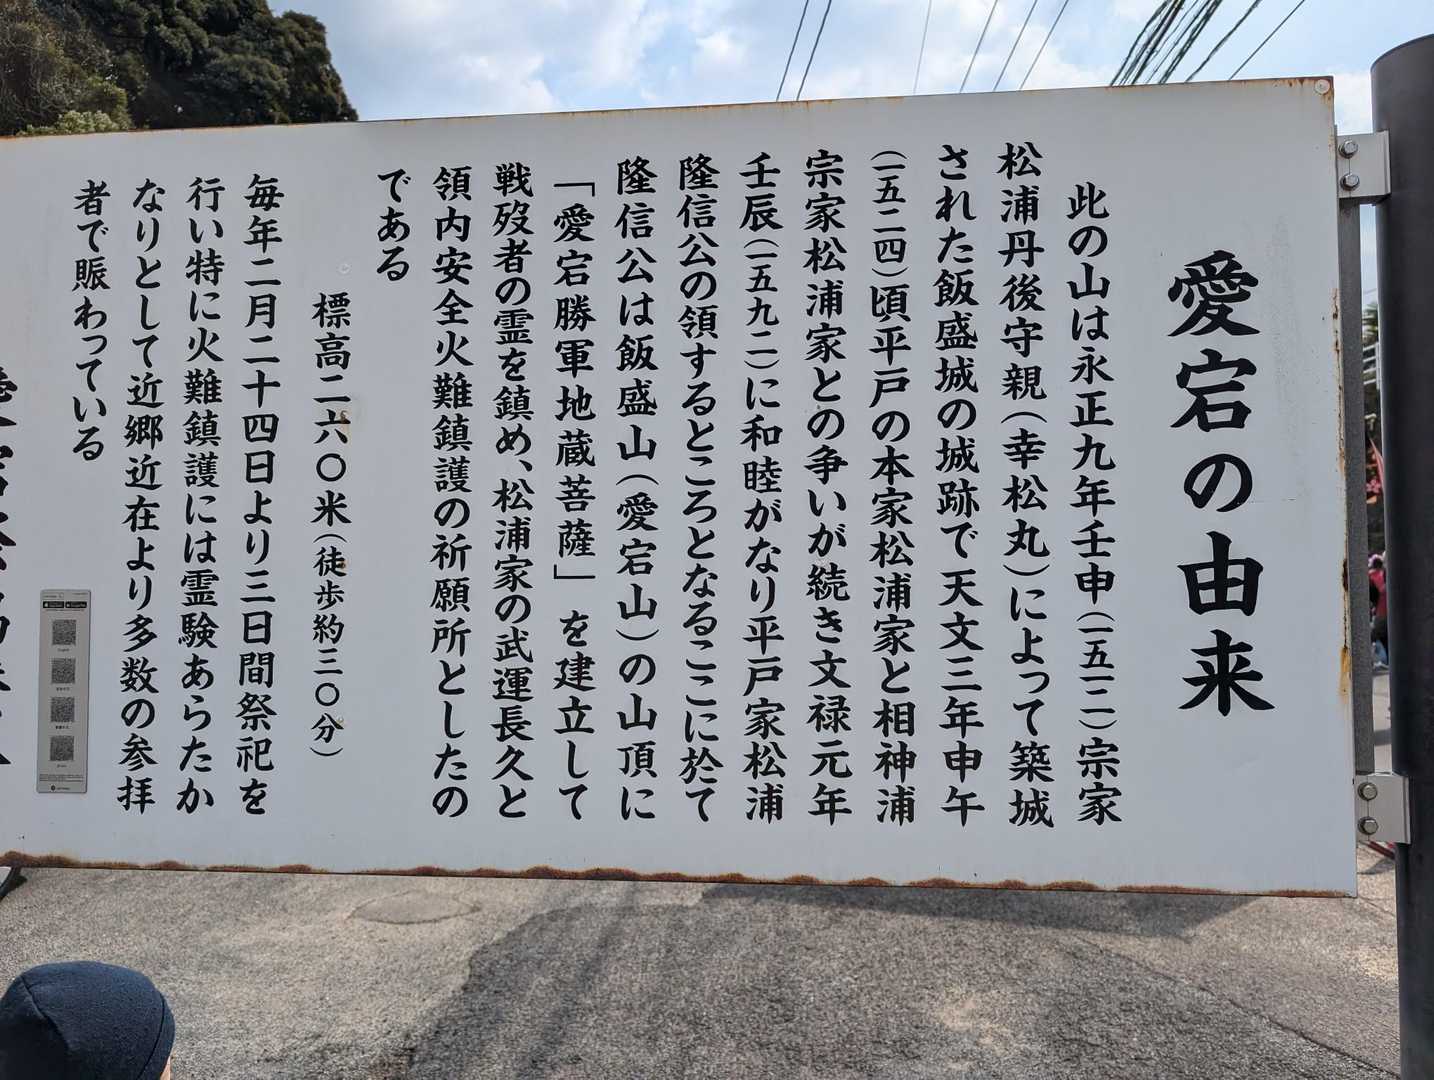 愛宕の由来
此の山は永正九年壬申(一五一二)宗家
松浦丹後守親(幸松丸)によって築城
された飯盛城の城跡で天文三年申午
(一五二四)頃平戸の本家松浦家と相神浦
宗家松浦家との争いが続き文禄元年
壬辰(一五九二)に和睦がなり平戸家松浦
隆信公の領するところとなるここに於て
隆信公は飯盛山(愛宕山)の山頂に
「愛宕勝軍地蔵菩薩」を建立して
戦歿者の霊を鎮め、松浦家の武運長久と
領内安全火難鎮護の祈願所としたの
である
標高二六〇米(徒歩約三〇分)
毎年二月二十四日より三日間祭祀を
行い特に火難鎮護には霊験あらたか
なりとして近郷近在より多数の参拝
者で賑わっている